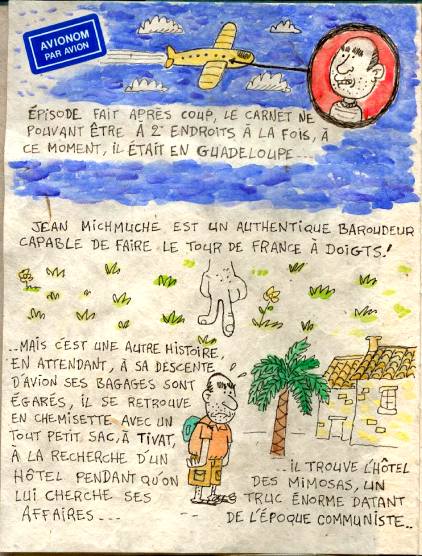 AVIONOM
PAR AVION
ÉPISODE FAIT APRÈS COUP, LE CARNET NE
POUVANT ÊTRE À 2 ENDROITS À LA FOIS, À
CE MOMENT, IL ÉTAIT EN GUADELOUPE....
JEAN MICHMUCHÉ EST UN AUTHENTIQUE BAROUDEUR
CAPABLE DE FAIRE LE TOUR DE FRANCE À DOIGTS!
..MAIS C'EST UNE AUTRE HISTOIRE,
EN ATTENDANT, À SA DESCENTE
D'AVION SES BAGAGES SONT
ÉGARÉS, IL SE RETROUVE
EN CHEMISETTE AVEC UN
TOUT PETIT SAC, À TIVAT,
À LA RECHERCHE D'UN
HÔTEL PENDANT QU'ON
LUI CHERCHE SES
AFFAIRES...
..IL TROUVE L'HÔTEL
DES MIMOSAS, UN
TRUC ÉNORME DATANT
DE L'ÉPOQUE COMMUNISTE..